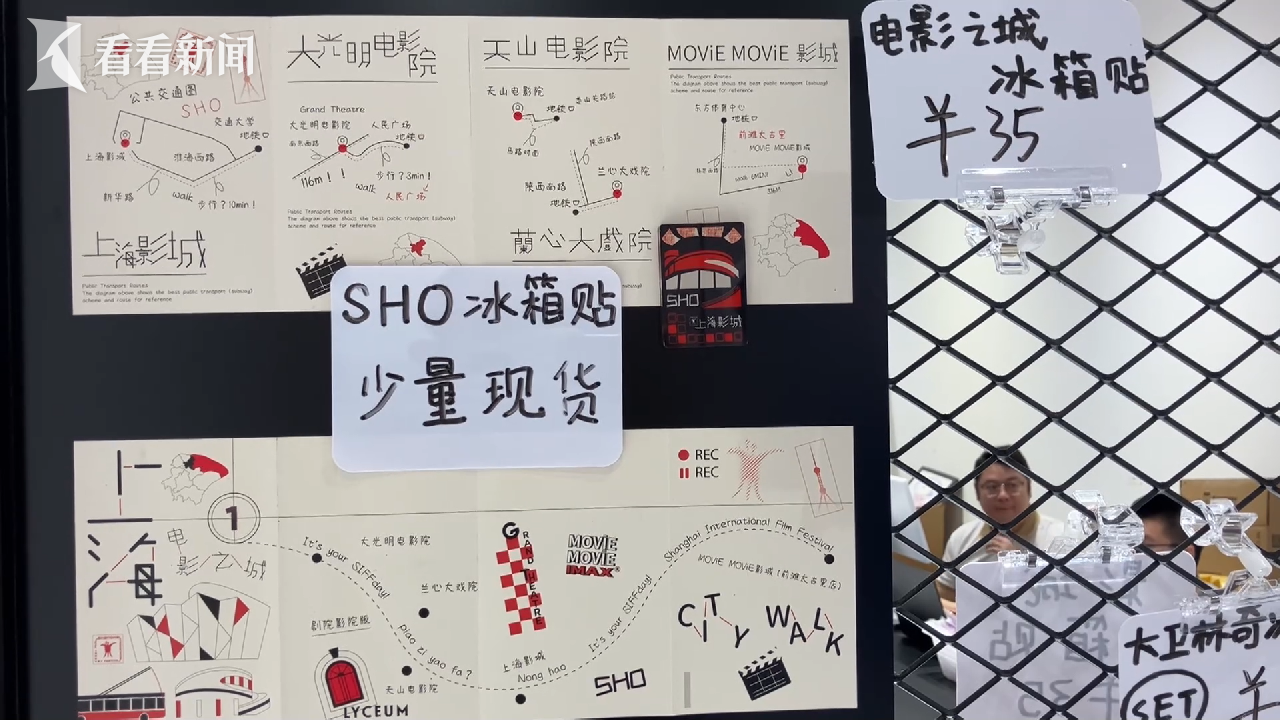 看看新闻
公共交通图
SHO
交通大学
地铁口
上海影城
淮海西路
新华路
walk
步行?10min!
上海影城
Public Transport Routes
The diagram above shows the best public transport (subway)
scheme and route for reference
大光明电影院
Grand Theatre
大光明电影院
人民广场
地铁口
南京西路
116m!!
walk
步行?3min!
人民广场
Public Transport Routes
The diagram above shows the best public transport (subway)
scheme and route for reference
天山电影院
天山电影院
地铁口
陕西南路
兰心大戏院
地铁口
蘭心大戲院
MOViE MOViE 影城
Public Transport Routes
The diagram above shows the best public transport (subway)
scheme and route for reference
东方体育中心
地铁口
前滩太古里
MOViE MOViE影城
SHO
上海影城
SHO冰箱贴
少量现货
电影之城
冰箱贴
¥35
上海
电影之城
1
It's your SIFFday!
大光明电影院
兰心大戏院
剧院影院版
piao zi yao fa?
天山电影院
LYCEUM
GRAND THEATRE
MOViE
MOViE
IMAX
上海影城
Nong hao
It's your SIFFday!
SHO
REC
REC
Shanghai International Film Festival
MOViE MOViE影城(前滩太古里店)
CITY WALK
大卫林奇
SET
¥